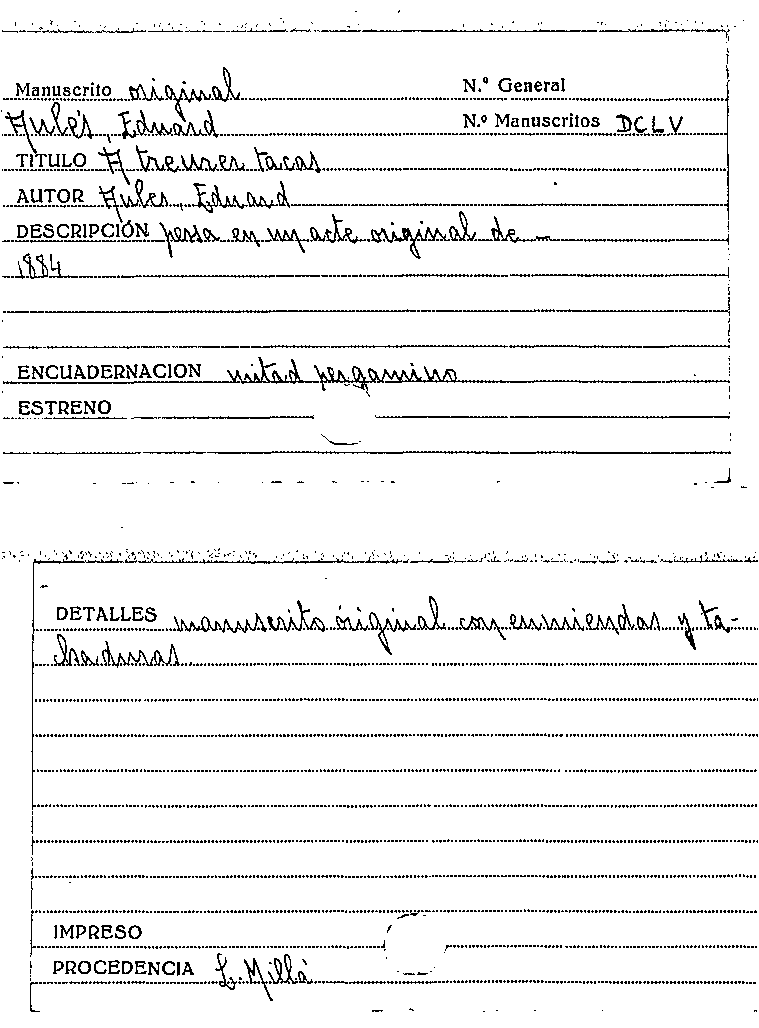 Manuscrito original N.º General
Aulés, Eduard N.º Manuscritos DCLV
TITULO A treurer tacas
AUTOR Aules, Eduard
DESCRIPCIÓN pessa en un acte original de —
1884
ENCUADERNACION mitad pergamino
ESTRENO
DETALLES manuscrito original con enmiendas y ta-
chaduras.
IMPRESO
PROCEDENCIA L. Millá